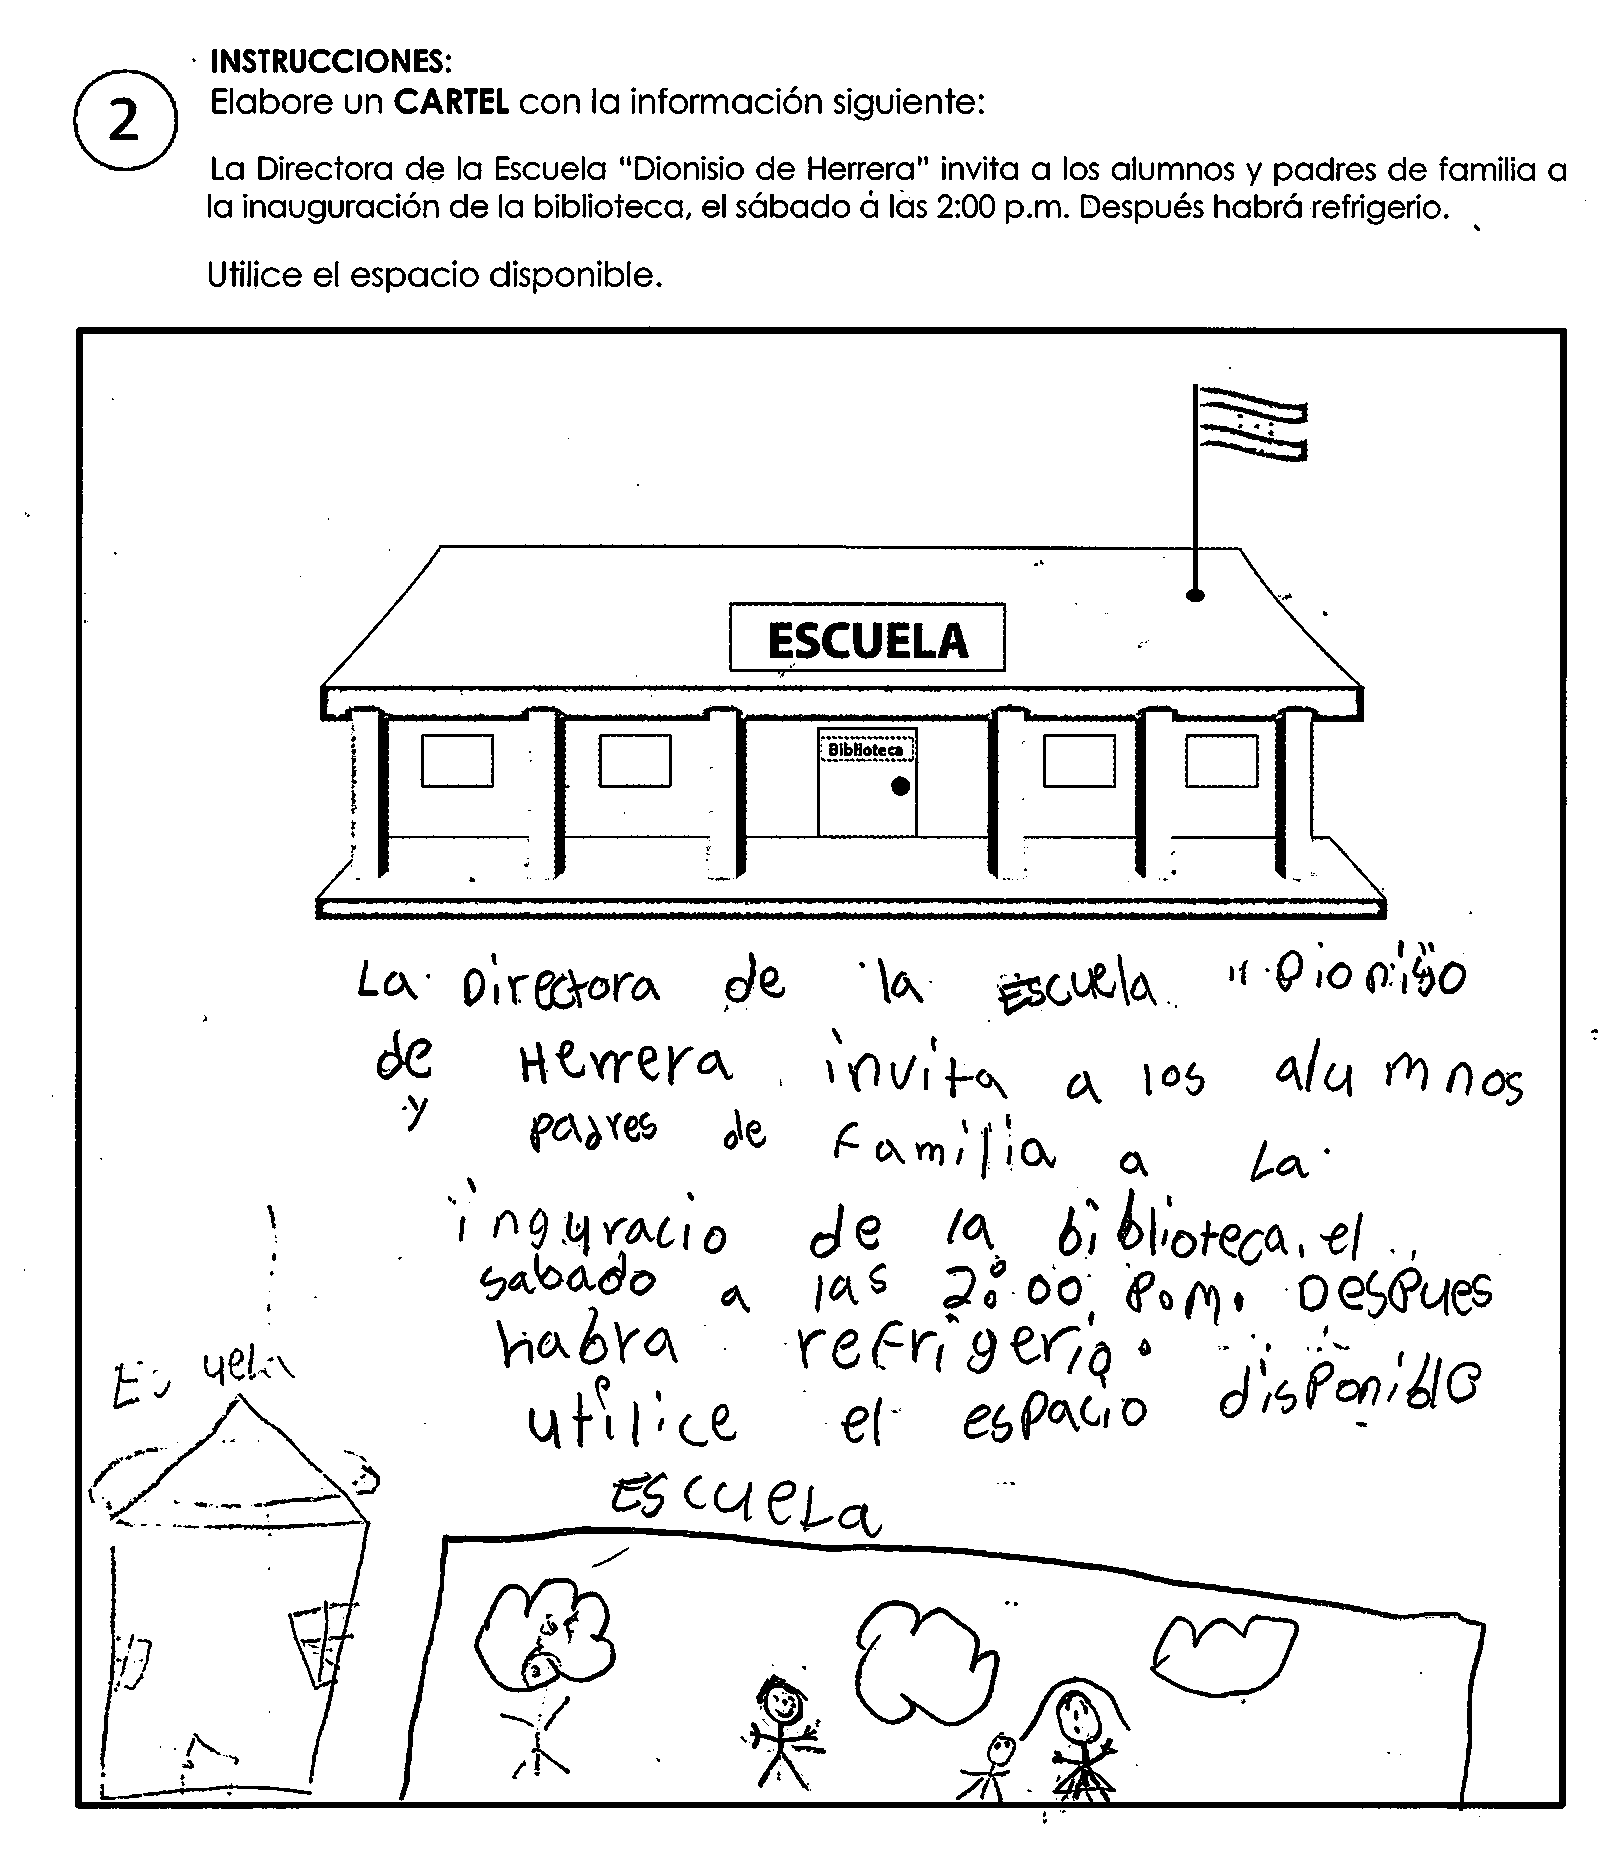 INSTRUCCIONES:
2
Elabore un CARTEL con la información siguiente:
La Directora de la Escuela “Dionisio de Herrera” invita a los alumnos y padres de familia a
la inauguración de la biblioteca, el sábado a las 2:00 p.m. Después habrá refrigerio.
Utilice el espacio disponible.
ESCUELA
Biblioteca
La Directora de la Escuela "Dioniso
de Herrera invita a los alumnos
y padres de familia a La
inguracio de la biblioteca, el
sabado a las 2:00 P.m. Despues
habra refrigerio.
utilice el espacio disponible
EScueLa